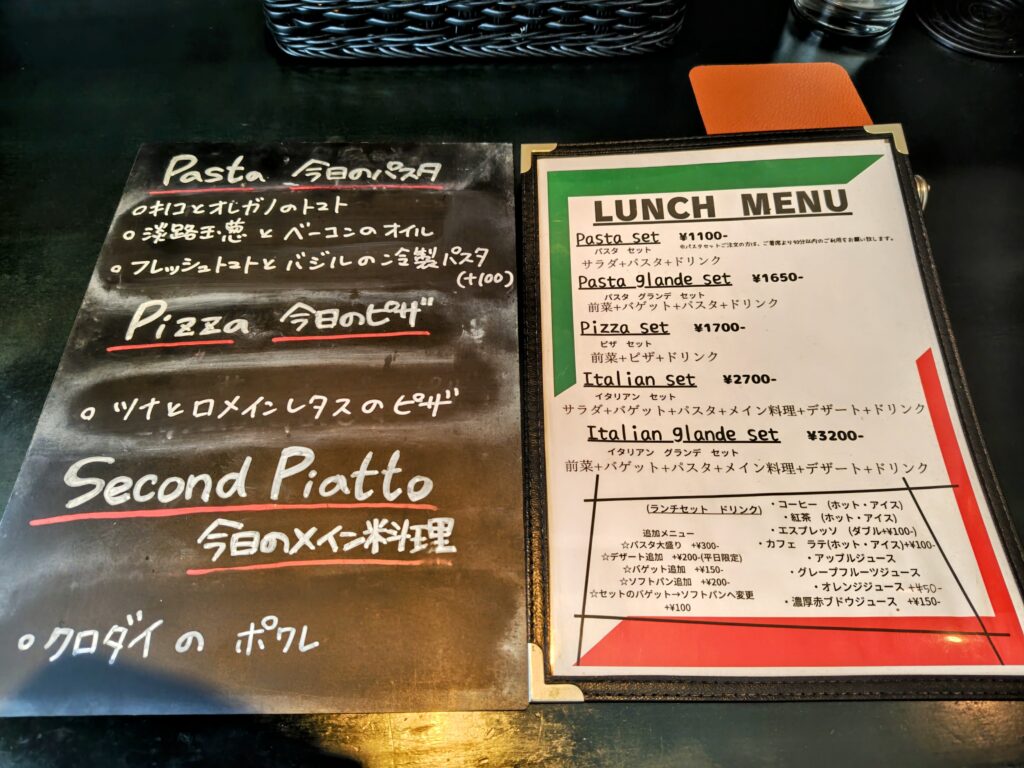 Pasta 今日のパスタ
○キノコとオレガノのトマト
○淡路玉葱とベーコンのオイル
○フレッシュトマトとバジルの冷製パスタ
(+100)
Pizza 今日のピザ
○ツナとロメインレタスのピザ
Second Piatto
今日のメイン料理
○クロダイの ポワレ
LUNCH MENU
Pasta set ¥1100- ※パスタセットご注文の方は、ご着席より90分以内のご利用をお願い致します。
パスタ セット
サラダ+パスタ+ドリンク
Pasta glande set ¥1650-
パスタ グランデ セット
前菜+バゲット+パスタ+ドリンク
Pizza set ¥1700-
ピザ セット
前菜+ピザ+ドリンク
Italian set ¥2700-
イタリアン セット
サラダ+バゲット+パスタ+メイン料理+デザート+ドリンク
Italian glande set ¥3200-
イタリアン グランデ セット
前菜+バゲット+パスタ+メイン料理+デザート+ドリンク
(ランチセット ドリンク)
追加メニュー
☆パスタ大盛り +¥300-
☆デザート追加 +¥200-(平日限定)
☆バゲット追加 +¥150-
☆ソフトパン追加 +¥200-
☆セットのバゲット→ソフトパンへ変更
+¥100
・コーヒー (ホット・アイス)
・紅茶 (ホット・アイス)
・エスプレッソ (ダブル+¥100-)
・カフェ ラテ(ホット・アイス)+¥100-
・アップルジュース
・グレープフルーツジュース
・オレンジジュース +¥50-
・濃厚赤ブドウジュース +¥150-